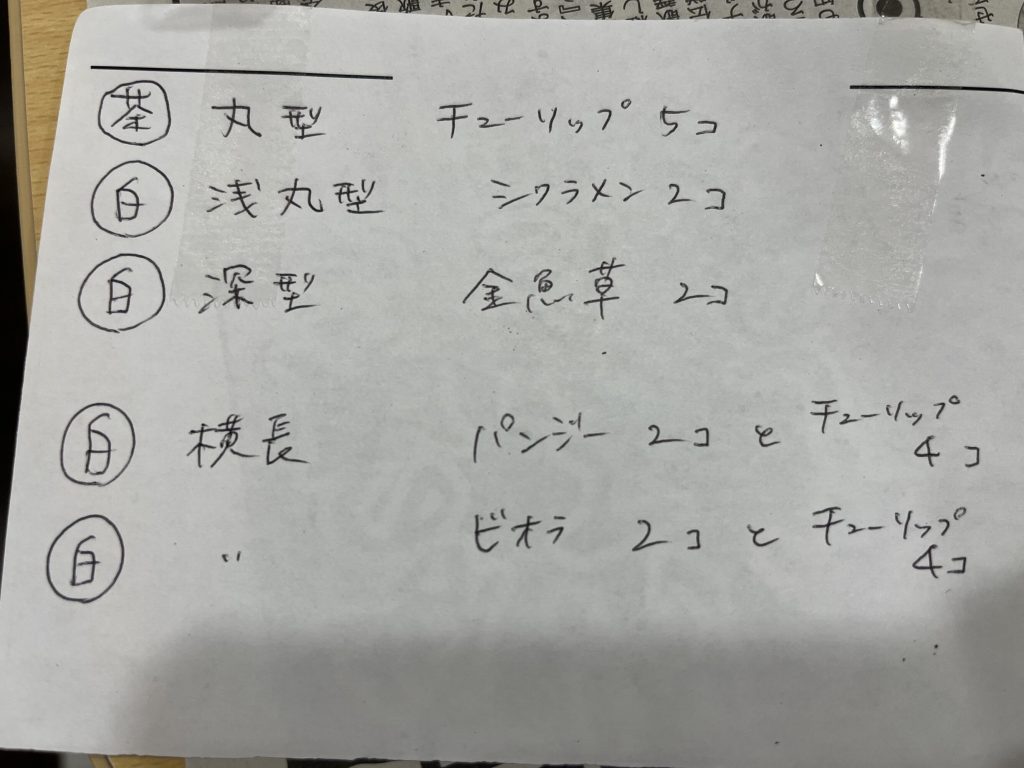 茶 丸型 チューリップ 5コ
白 浅丸型 シクラメン 2コ
白 深型 金魚草 2コ
白 横長 パンジー 2コ と チューリップ 4コ
白 〃 ビオラ 2コ と チューリップ 4コ